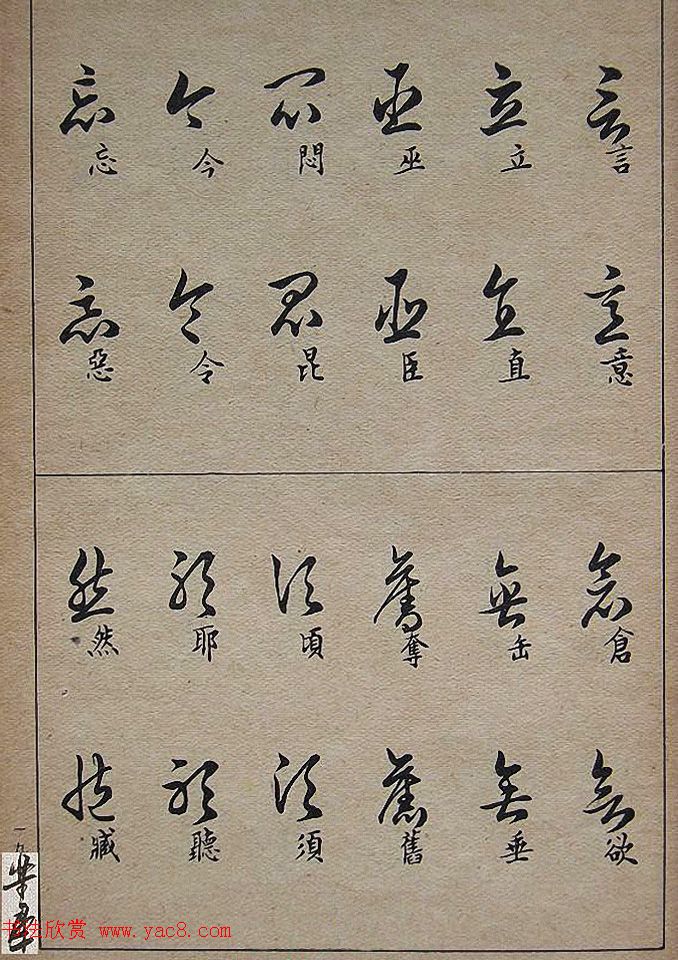 言 立 巫 悶 今 忘
意 直 臣 昆 令 惡
倉 缶 奪 頃 耶 然
欲 垂 舊 須 聽 臧
一九
书法欣赏 www.yac8.com